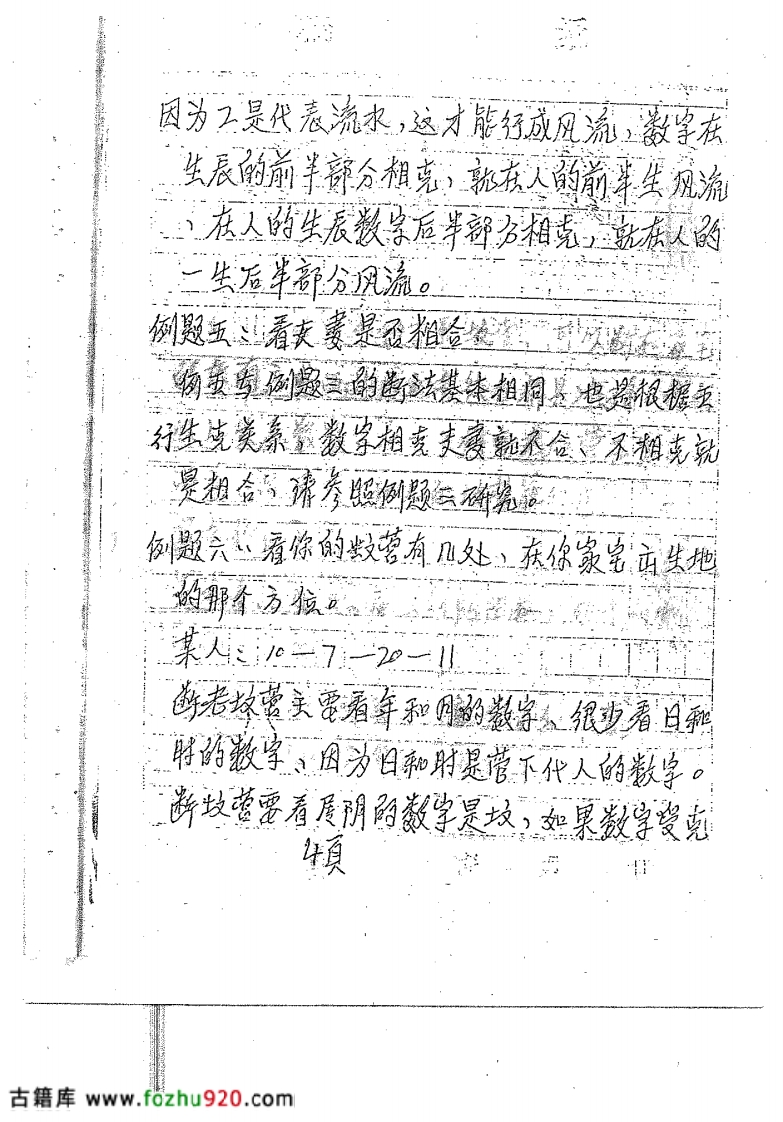 因为2是代表流水,这才能行成风流、数字在
生辰的前半部分相克、就在人的前半生风流
、在人的生辰数字后半部分相克,就在人的
一生后半部分风流。
例题五:看夫妻是否相合
例五与例题三的断法基本相同、也是根据五
行生克关系,数字相克夫妻就不合、不相克就
是相合、请参照例题三研究。
例题六:看你的坟茔有几处、在你家宅出生地
的那个方位。
某人:10—7—20—11
断老坟茔主要看年和月的数字、很少看日和
时的数字、因为日和时是管下代人的数字。
断坟茔要看属阴的数字是坟,如果数字受克
4页
古籍库 www.fozhu920.com